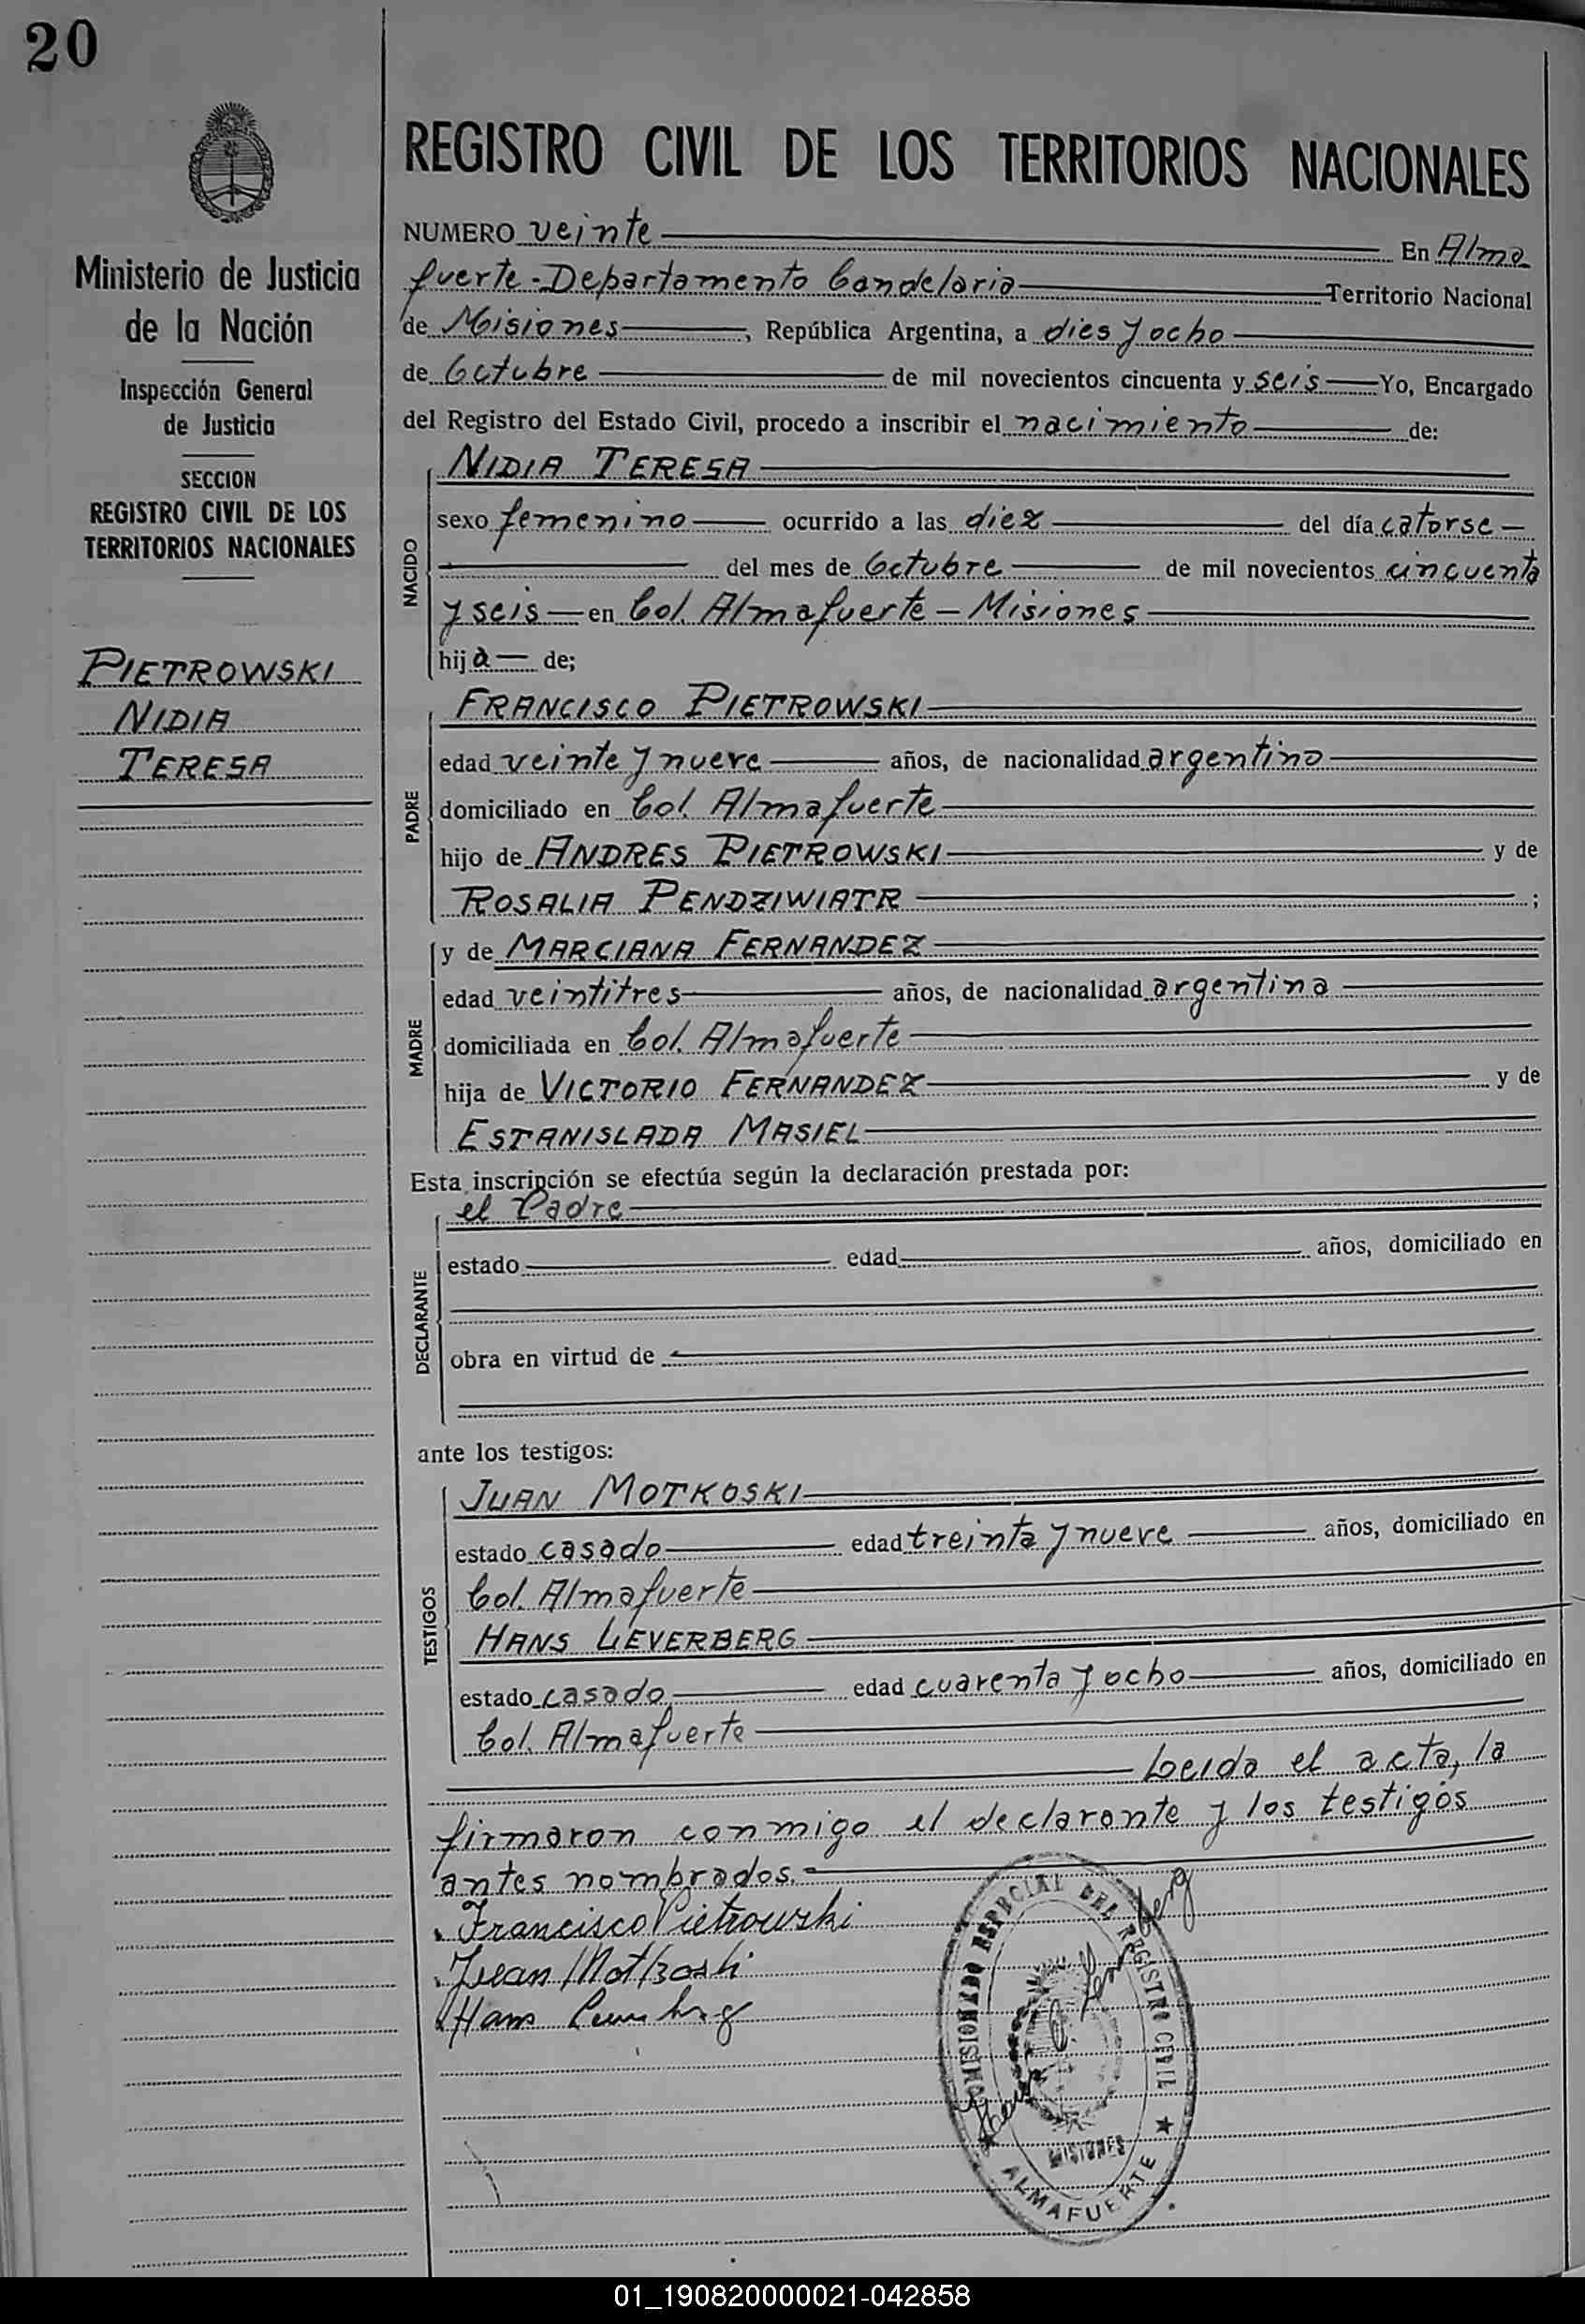 20
Ministerio de Justicia
de la Nación
Inspección General
de Justicia
SECCION
REGISTRO CIVIL DE LOS
TERRITORIOS NACIONALES
PIETROWSKI
NIDIA
TERESA
REGISTRO CIVIL DE LOS TERRITORIOS NACIONALES
NUMERO veinte En Alma
fuerte - Departamento Candelaria Territorio Nacional
de Misiones, República Argentina, a dies y ocho
de Octubre de mil novecientos cincuenta y seis Yo, Encargado
del Registro del Estado Civil, procedo a inscribir el nacimiento de:
NACIDO
NIDIA TERESA
sexo femenino ocurrido a las diez del día catorse
del mes de Octubre de mil novecientos cincuenta
y seis en Col. Almafuerte - Misiones
hija de;
PADRE
FRANCISCO PIETROWSKI
edad veinte y nueve años, de nacionalidad argentino
domiciliado en Col. Almafuerte
hijo de ANDRES PIETROWSKI y de
ROSALIA PENDZIWIATR ;
MADRE
y de MARCIANA FERNANDEZ
edad veintitres años, de nacionalidad argentina
domiciliada en Col. Almafuerte
hija de VICTORIO FERNANDEZ y de
ESTANISLADA MASIEL
Esta inscripción se efectúa según la declaración prestada por:
DECLARANTE
el Padre
estado edad años, domiciliado en
obra en virtud de
ante los testigos:
TESTIGOS
JUAN MOTKOSKI
estado casado edad treinta y nueve años, domiciliado en
Col. Almafuerte
HANS LEVERBERG
estado casado edad cuarenta y ocho años, domiciliado en
Col. Almafuerte
Leida el acta, la
firmaron conmigo el declarante y los testigos
antes nombrados.
Francisco Pietrowski
Juan Motkoski
Hans
COMISIONADO ESPECIAL DEL REGISTRO CIVIL
MISIONES
ALMAFUERTE
01_190820000021-042858